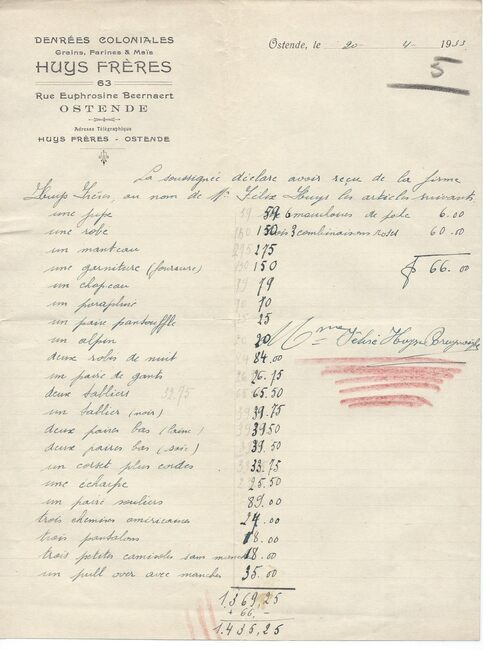 DENRÉES COLONIALES
Grains, Farines & Maïs
HUYS FRÈRES
63
Rue Euphrosine Beernaert
OSTENDE
Adresse Télégraphique
HUYS FRÈRES - OSTENDE
Ostende, le 20 - 4 - 1933
5
La soussignée déclare avoir reçu de la firme
Huys Frères, au nom de Mr Félix Huys les articles suivants
une jupe 59 6 mouchoirs de poche 6.00
une robe 150 3 combinaisons roses 60.00
un manteau 275
une garniture (fourrure) 150 66.00
un chapeau 79
un parapluie 70
un paire pantouffle 25
un alpin 20 Mme Félix Huys
deux robes de nuit 84.00
un paire de gants 26.75
deux tabliers 32.75 65.50
un tablier (noir) 39.75
deux paires bas (laine) 39.50
deux paires bas (soie) 39.50
un corset plus cordes 33.75
une écharpe 25.50
un paire souliers 89.00
trois chemises américaines 24.00
trois pantalons 18.00
trois petites camisoles sans manches 18.00
un pull over avec manches 35.00
1.369,25
+ 66,-
1.435,25